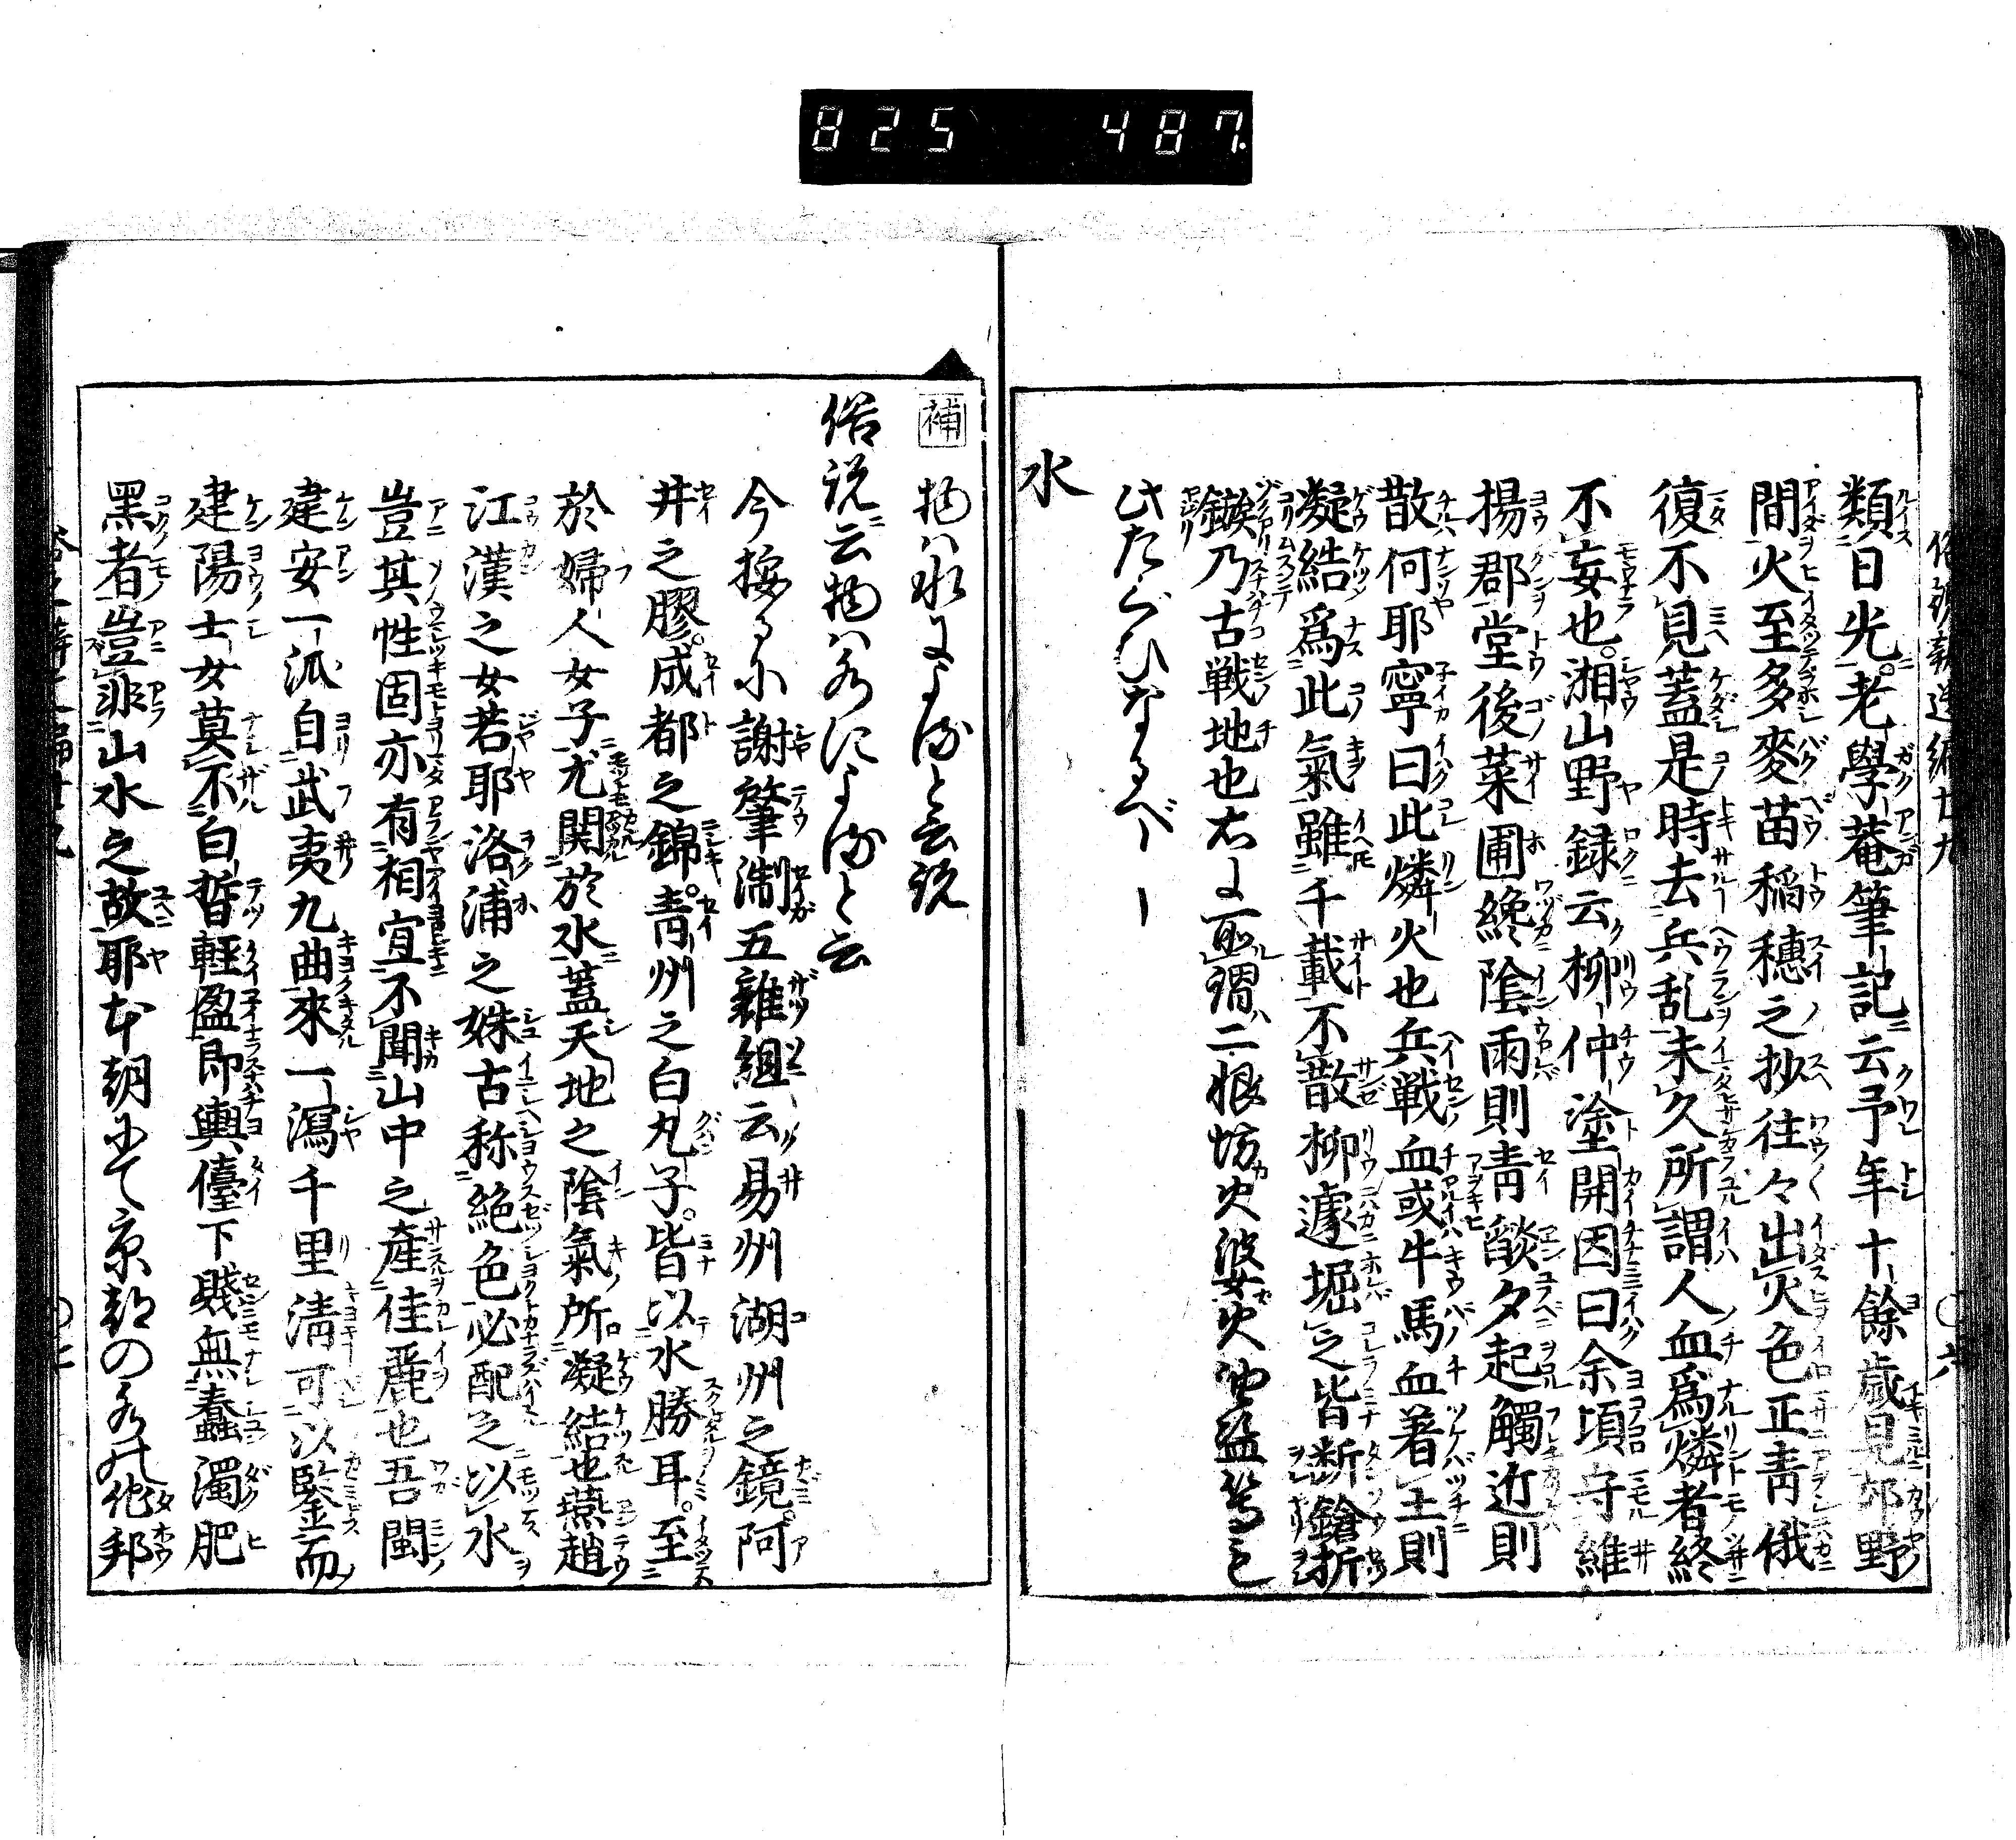 825 487
類日光。老學菴筆記云予年十餘歳見郊野
間火至多麥苗稲穗之抄往々出火色正青俄
復不見蓋是時去兵乱未久所謂人血爲燐者終
不妄也。湘山野録云柳仲塗開因曰余頃守維
揚郡堂後菜圃纔陰雨則青燄夕起觸近則
散何耶寧曰此燐火也兵戦血或牛馬血着土則
凝結爲此氣雖千載不散柳遽堀之皆断鎗折
鏃乃古戦地也右に所謂二恨坊火婆火
此たぐひなるべし
水
補 物ハ水によると云説
俗説ニ云物ハ水によると云
今按るに謝肇淛五雜組云易州湖州之鏡。阿
井之膠。成都之錦。青州之白丸子。皆以水勝耳。至
於婦人女子尤関於水蓋天地之陰氣所凝結也燕趙
江漢之女若耶洛浦之姝古称絶色必配之以水
豈其性固亦有相宜不聞山中之産佳麗也吾閩
建安一派自武夷九曲來一瀉千里清可以鑒而
建陽士女莫不白皙軽盈即輿儓下賤無蠢濁肥
黒者豈非山水之故耶本朝にて京都の水は他邦